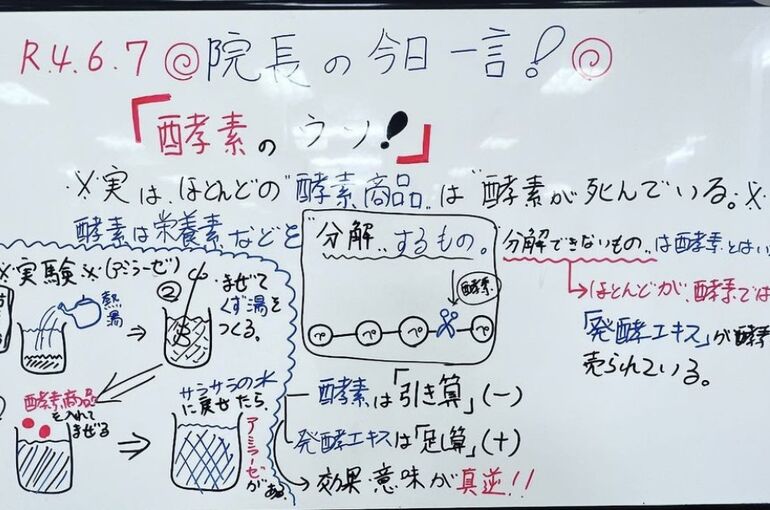 R.4.6.7 院長の今日一言!
「酵素のウソ!」
※実は、ほとんどの"酵素商品"は"酵素が死んでいる。※
酵素は栄養素などを"分解"するもの。
"分解できないもの"は酵素とはい
→ほとんどが、酵素では
「発酵エキス」が酵素
売られている。
酵素
ペ ペ ペ ペ
※実験※(アミラーゼ)
熱湯
②まぜてくず湯をつくる。
酵素商品を入れてまぜる
サラサラの水に戻せたら、
アミラーゼがある
酵素は「引き算」(−)
発酵エキスは「足し算」(+)
→効果・意味が真逆!!